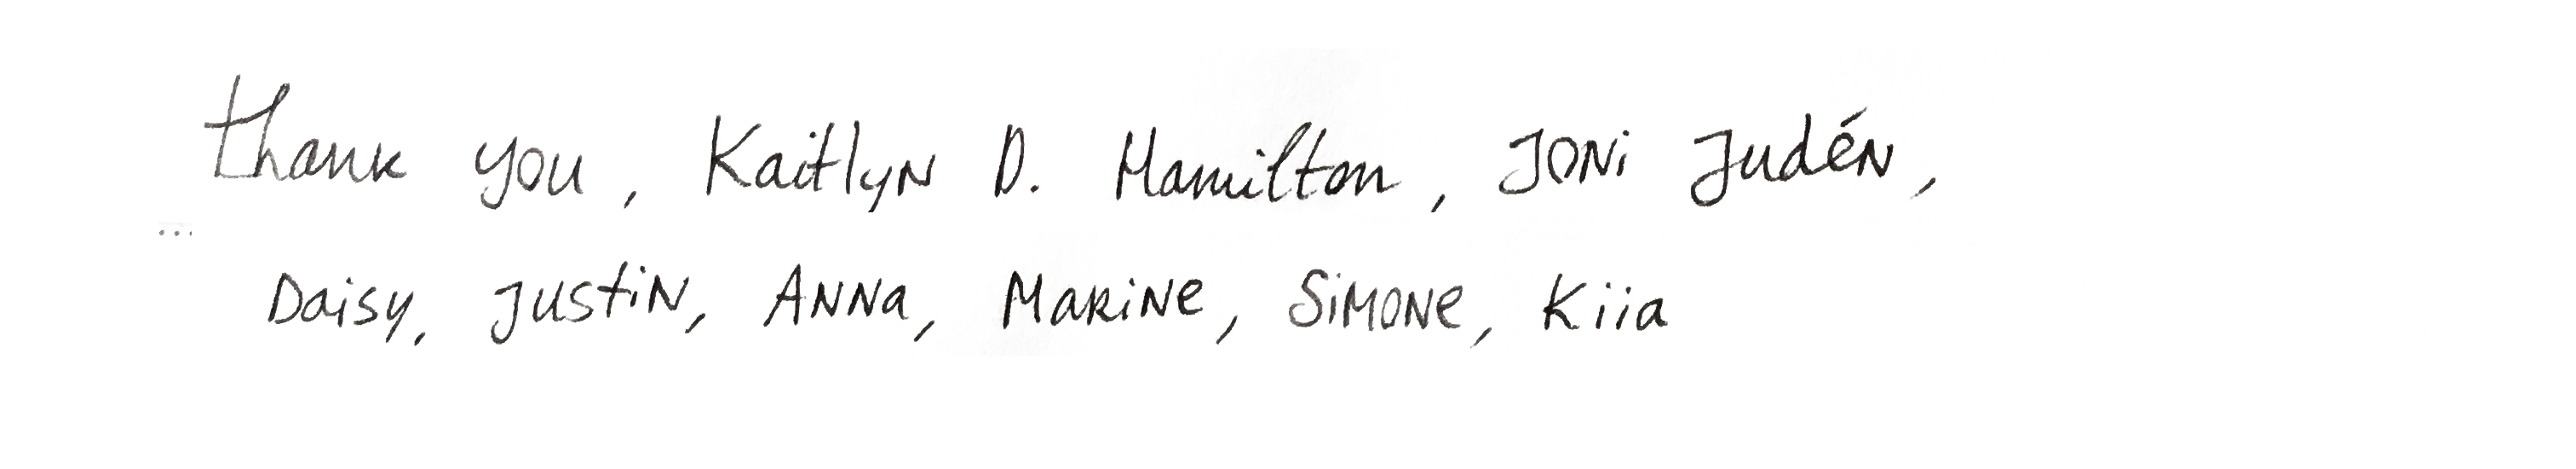 thank you, Kaitlyn D. Hamilton, Joni Judén,
...
Daisy, Justin, Anna, Marine, Simone, Kiia